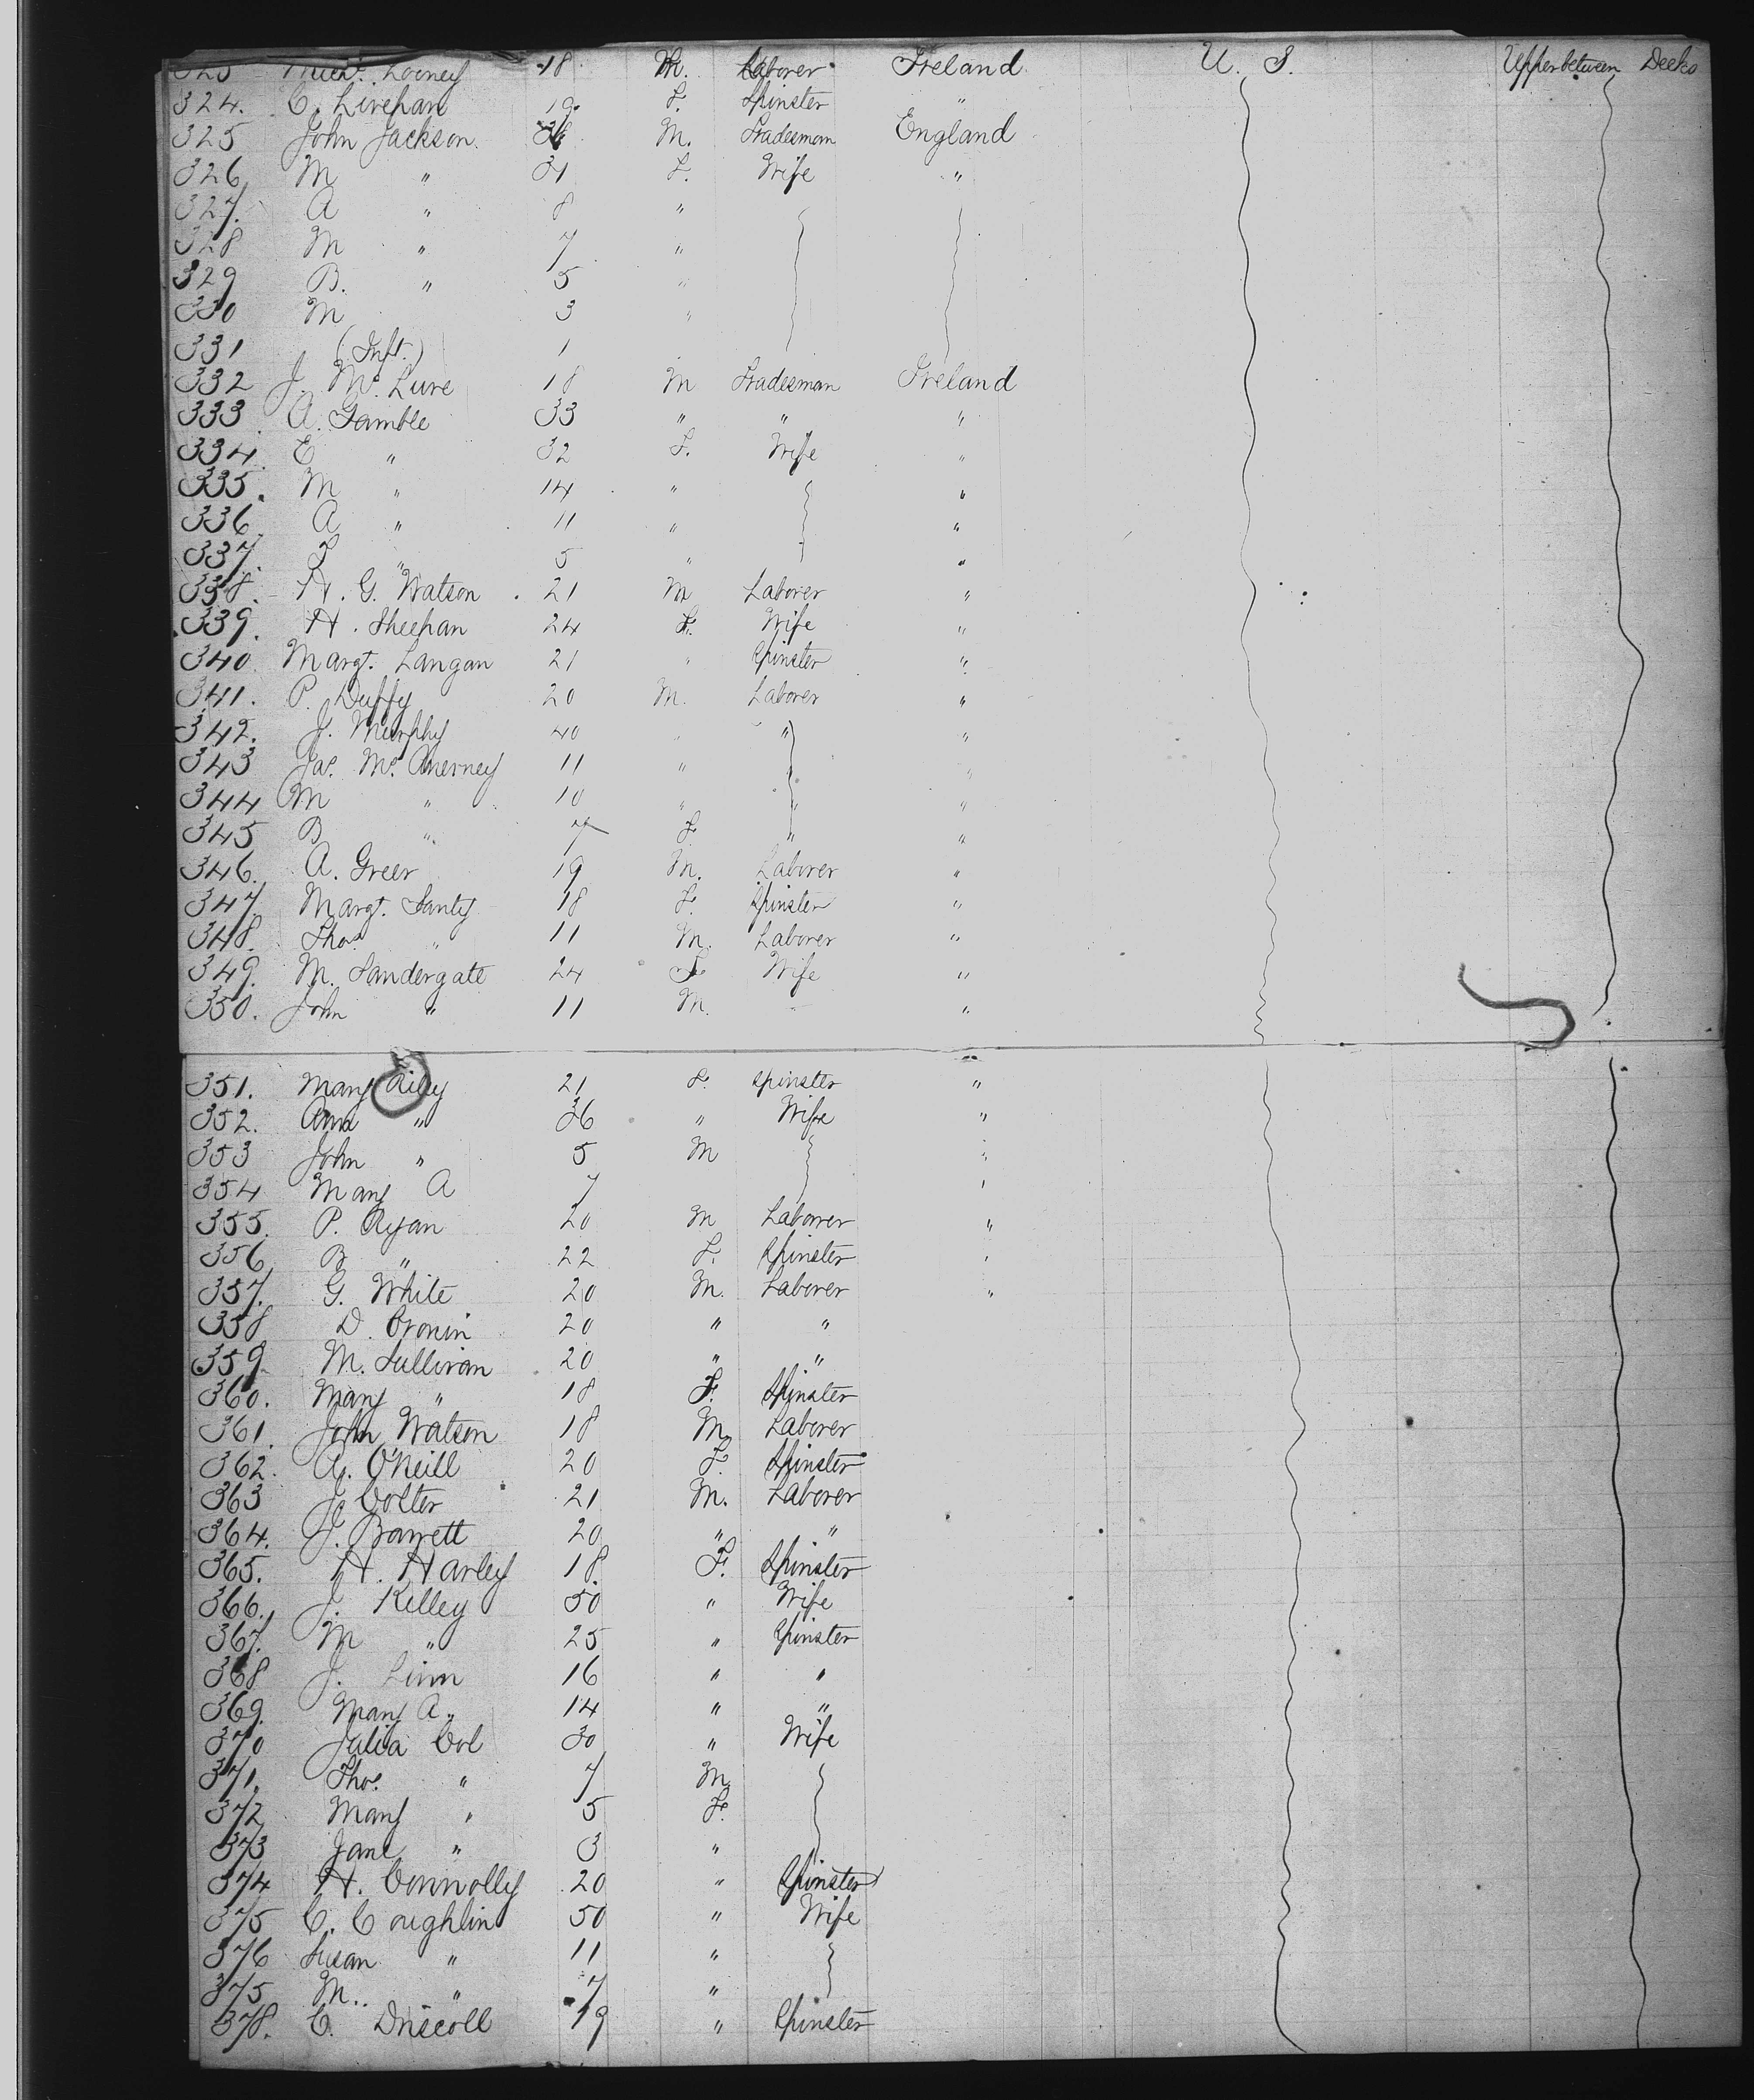 323 Michl. Looney 18 M. Laborer Ireland U. S. Upper between Decks
324. C. Linehan 19 F. Spinster "
325 John Jackson 36 M. Tradesman England
326 M " 31 F. Wife "
327. A " 8 "
328 M " 7 "
329 B. " 5 "
330 M 3 "
331 (Inft.) 1
332 J. McLure 18 M Tradesman Ireland
333 A. Gamble 33 " " "
334. E " 32 F. Wife "
335. M " 14 " "
336. A " 11 " "
337. F " 5 " "
338. H. G. Watson 21 M Laborer "
339. H. Sheehan 24 F. Wife "
340. Margt. Langan 21 " Spinster "
341. P. Duffy 20 M. Laborer "
342. J. Murphy 40 " " "
343 Jas. Mc. Anerney 11 " "
344 M " 10 " " "
345 B " 7 F " "
346. A. Greer 19 M. Laborer "
347 Margt. Santy 18 F. Spinster "
348. Thos " 11 M. Laborer "
349. M. Sandergate 24 F. Wife "
350. John " 11 M. "
351. Mary Riley 21 F. Spinster "
352. Ann " 36 " Wife "
353 John " 5 M "
354 Mary A 7 "
355. P. Ryan 20 M Laborer "
356 B " 22 F. Spinster "
357. G. White 20 M. Laborer "
358 D. Cronin 20 " "
359. M. Sullivan 20 " "
360. Mary " 18 F. Spinster
361. John Watson 18 M. Laborer
362. A. O'Neill 20 F. Spinster
363 J. Colter 21 M. Laborer
364. J. Barrett 20 " "
365. H. Harley 18. F. Spinster
366. J. Kelley 50 " Wife
367. M " 25 " Spinster
368 J. Linn 16 " "
369. Mary A. " 14 " "
370 Julia Col 30 " Wife
371. Thos. " 7 M.
372 Mary " 5 F.
373 Jane " 3 "
374 H. Connolly 20 " Spinster
375 C. Coughlin 50 " Wife
376 Susan " 11 "
375 M.. " 7 "
378. C. Driscoll 19 " Spinster